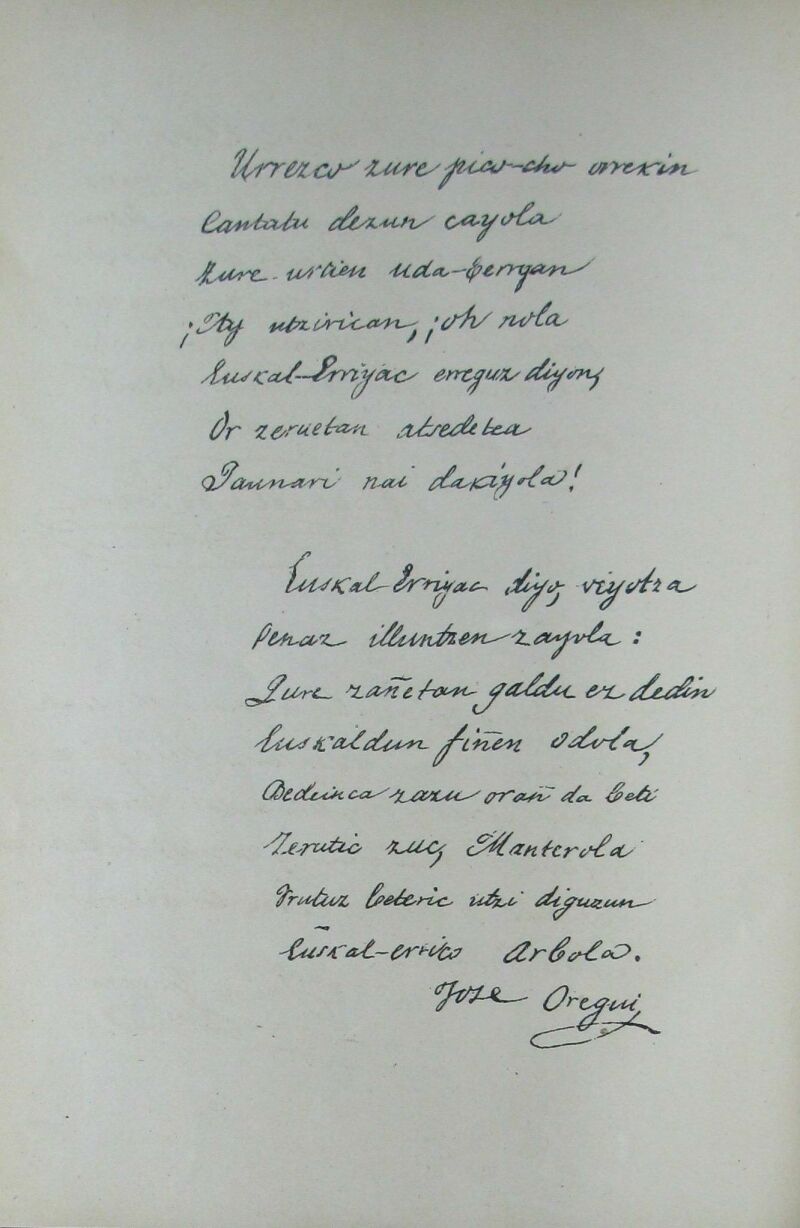 Urrezco zure pico-cho orrekin
Cantatu dezun cayola
Zure urtien uda-berryan
¡Ay utzirican, ¡oh nola
Euskal-Erriyac erreguz diyon,
Or zeruetan atsedetea
Jaunari nai dakiyola!
Euskal-Erriyac diyo, viyotza
Penaz illuntzen zayola:
Zure zañetan galdu ez dedin
Euskaldun fiñen odola,
Bedeinca zazu orañ da beti
Zerutic zuc, Manterola
Frutuz beteric utzi diguzun
Euskal-errico Arbola.
Jose Oregui,